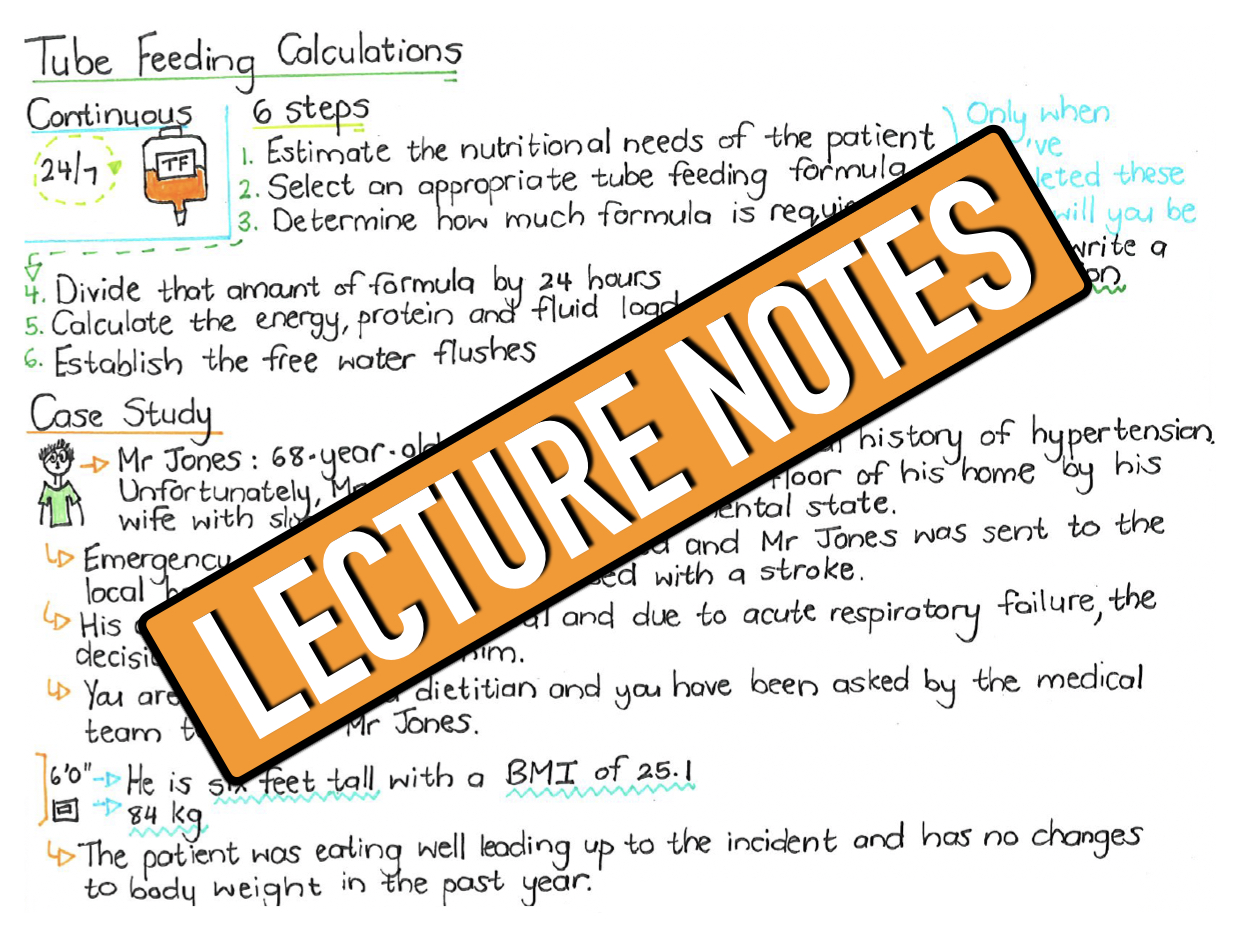 Tube Feeding Calculations
Continuous
24/7
TF
6 steps
1. Estimate the nutritional needs of the patient
2. Select an appropriate tube feeding formula
3. Determine how much formula is
Only when
've
these
will you be
write a
4. Divide that amount of formula by 24 hours
5. Calculate the energy, protein and fluid
6. Establish the free water flushes
LECTURE NOTES
Case Study
Mr Jones : 68-year- history of hypertension.
Unfortunately, of his home by his
wife with state.
Emergency and Mr Jones was sent to the
local with a stroke.
His and due to acute respiratory failure, the
You are dietitian and you have been asked by the medical
team Mr Jones.
6'0" He is six feet tall with a BMI of 25.1
84 kg
The patient was eating well leading up to the incident and has no changes
to body weight in the past year.